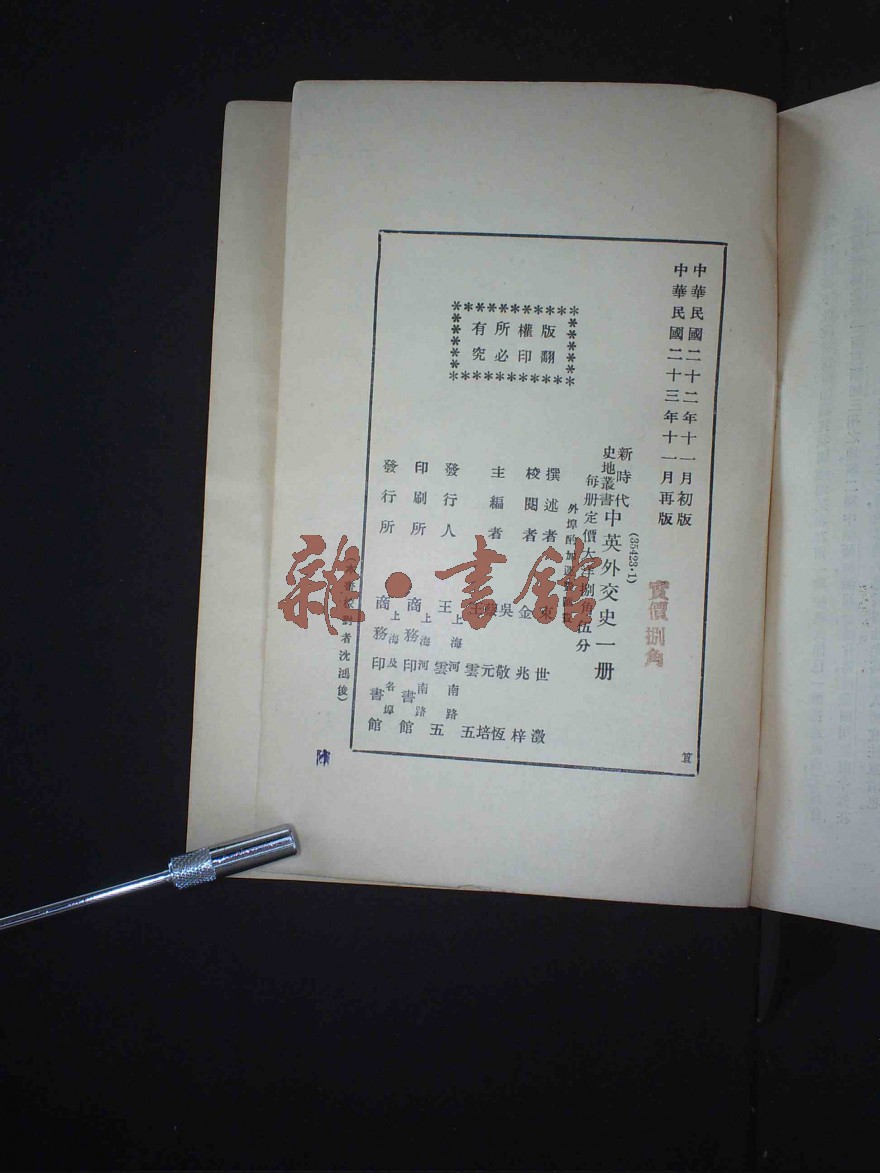 中華民國二十二年十一月初版
中華民國二十三年十一月再版
(35423·1)
新時代
史地叢書
中英外交史一册
每册定價大洋捌角伍分
外埠酌加運費匯費
實價捌角
版權所有
翻印必究
撰述者 束世澂
校閱者 金兆梓
主編者 吳敬恆
蔡元培
王雲五
發行人 王雲五
上海河南路
印刷所 商務印書館
上海河南路
發行所 商務印書館
上海及各埠
校對者沈鴻俊)
雜·書館